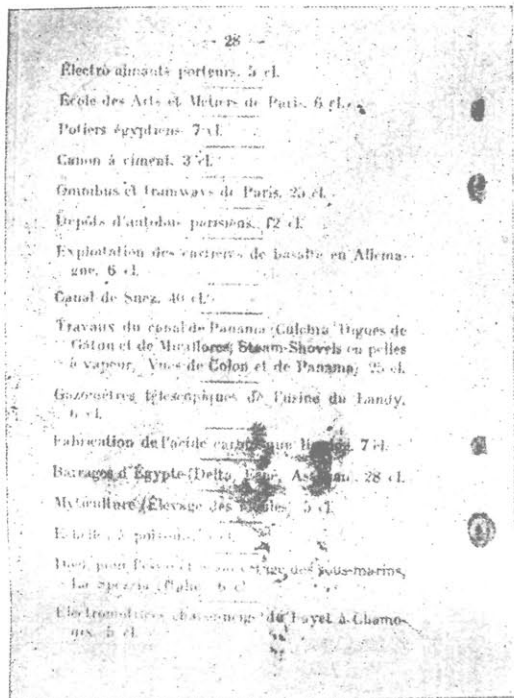 — 28 —
Électro-aimants porteurs. 5 cl.
École des Arts et Métiers de Paris. 6 cl.
Potiers égyptiens. 7 cl.
Canon à ciment. 3 cl.
Omnibus et tramways de Paris. 25 cl.
Dépôts d'autobus parisiens. 12 cl.
Exploitation des carrières de basalte en Allema-
gne. 6 cl.
Canal de Suez. 40 cl.
Travaux du canal de Panama, Culebra, Digues de
Gatun et de Miraflores, Steam-Shovels ou pelles
à vapeur, Vues de Colon et de Panama, 25 cl.
Gazomètres télescopiques de l'usine du Landy.
6 cl.
Fabrication de l'acide carbonique 7 cl.
Barrages d'Égypte (Delta, Esné, Assouan). 28 cl.
Mytiliculture (Élevage des moules) 5 cl.
à poissons. cl.
Dock pour des sous-marins,
La Spezzia 6 cl.
Électromotrices du Fayet à Chamo-
nix. 5 cl.